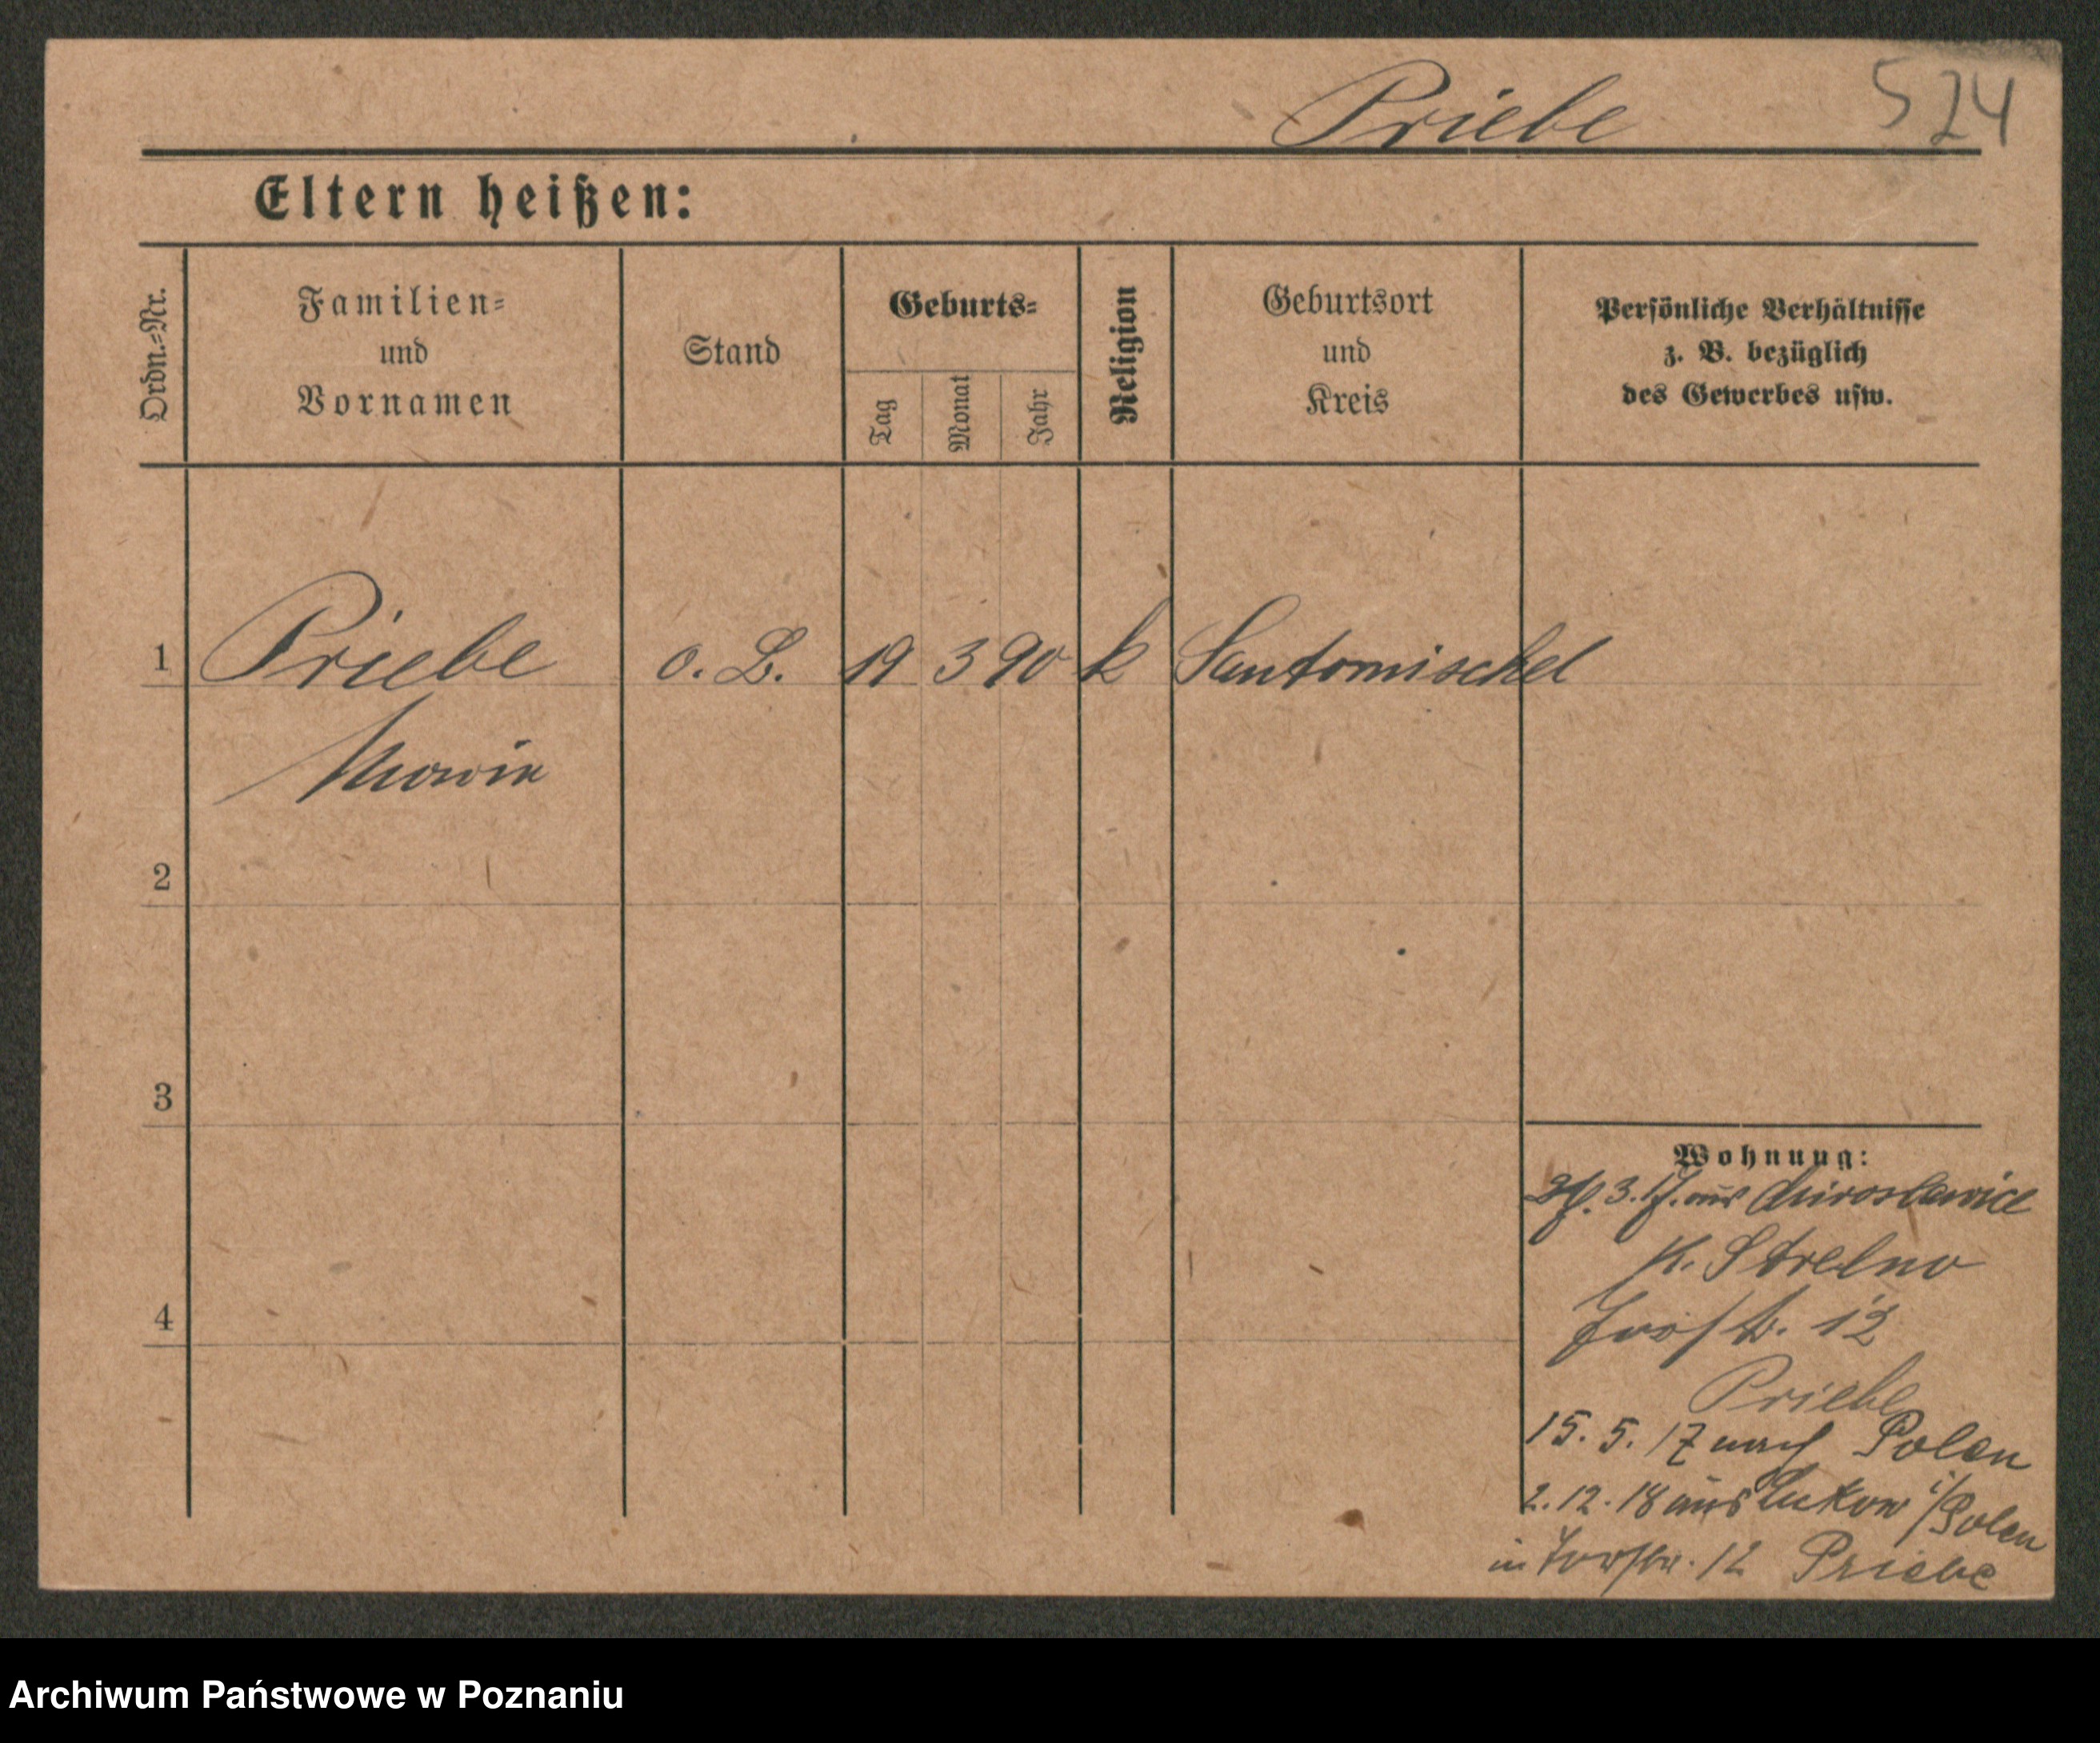 Priebe 524
Eltern heißen:
Ordn.=Nr.
Familien=
und
Vornamen
Stand
Geburts=
Tag
Monat
Jahr
Religion
Geburtsort
und
Kreis
Persönliche Verhältnisse
z. B. bezüglich
des Gewerbes usw.
1 Priebe o. B. 19 3 90 k Santomischel
2
3
4
Wohnung:
3. 17. aus Miroslawice
K. Strelno
12
Priebe
15. 5. 17 nach Polen
2. 12. 18 aus Lukow i/Polen
in 12 Priebe
Archiwum Państwowe w Poznaniu